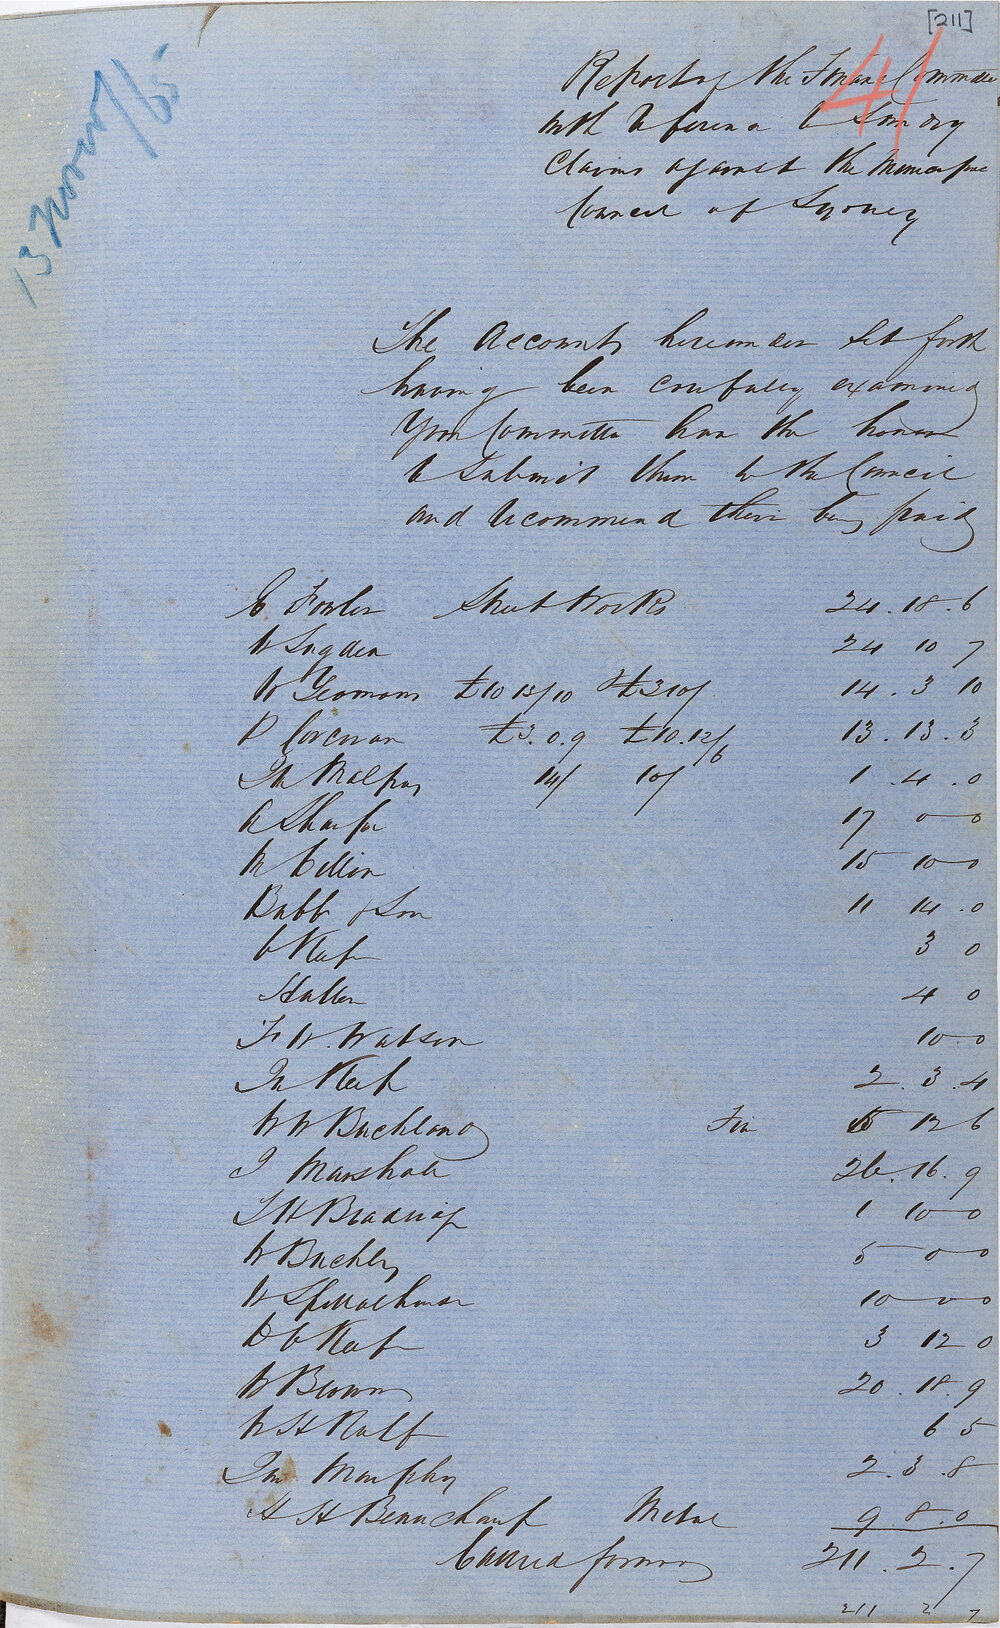 [211]
41
13 Novr/65
Report of the Finance Committee
with reference to Sundry
Claims against the Municipal
Council of Sydney
The Accounts hereunder set forth
having been carefully examined
Your Committee have the honor
to submit them to the Council
and recommend their being paid
E Fowler Street Works 24.18.6
W Sugden 24 10 7
W Yeomans £10 13/10 £3 10/ 14.3 10
P Corcoran £3.0.9 £10.12/6 13.13.3
14/ 10/ 1.4.0
A Sharpe 17 0 0
15 10 0
Bubb & Son 11 14.0
O Keefe 3 0
4 0
W. Watson 10.0
Keep 2.3.4
W W Buckland 15 12 6
J Marshall 26.16.9
1 10 0
W Buckley 5 0 0
10 0 0
D O Keefe 3 12 0
W Brown 20.18.9
W H Rolf 6 5
Murphy 2.3.8
H H Beauchamp Metal 9.8.0
Carried forward 211.2.7
211 2 7